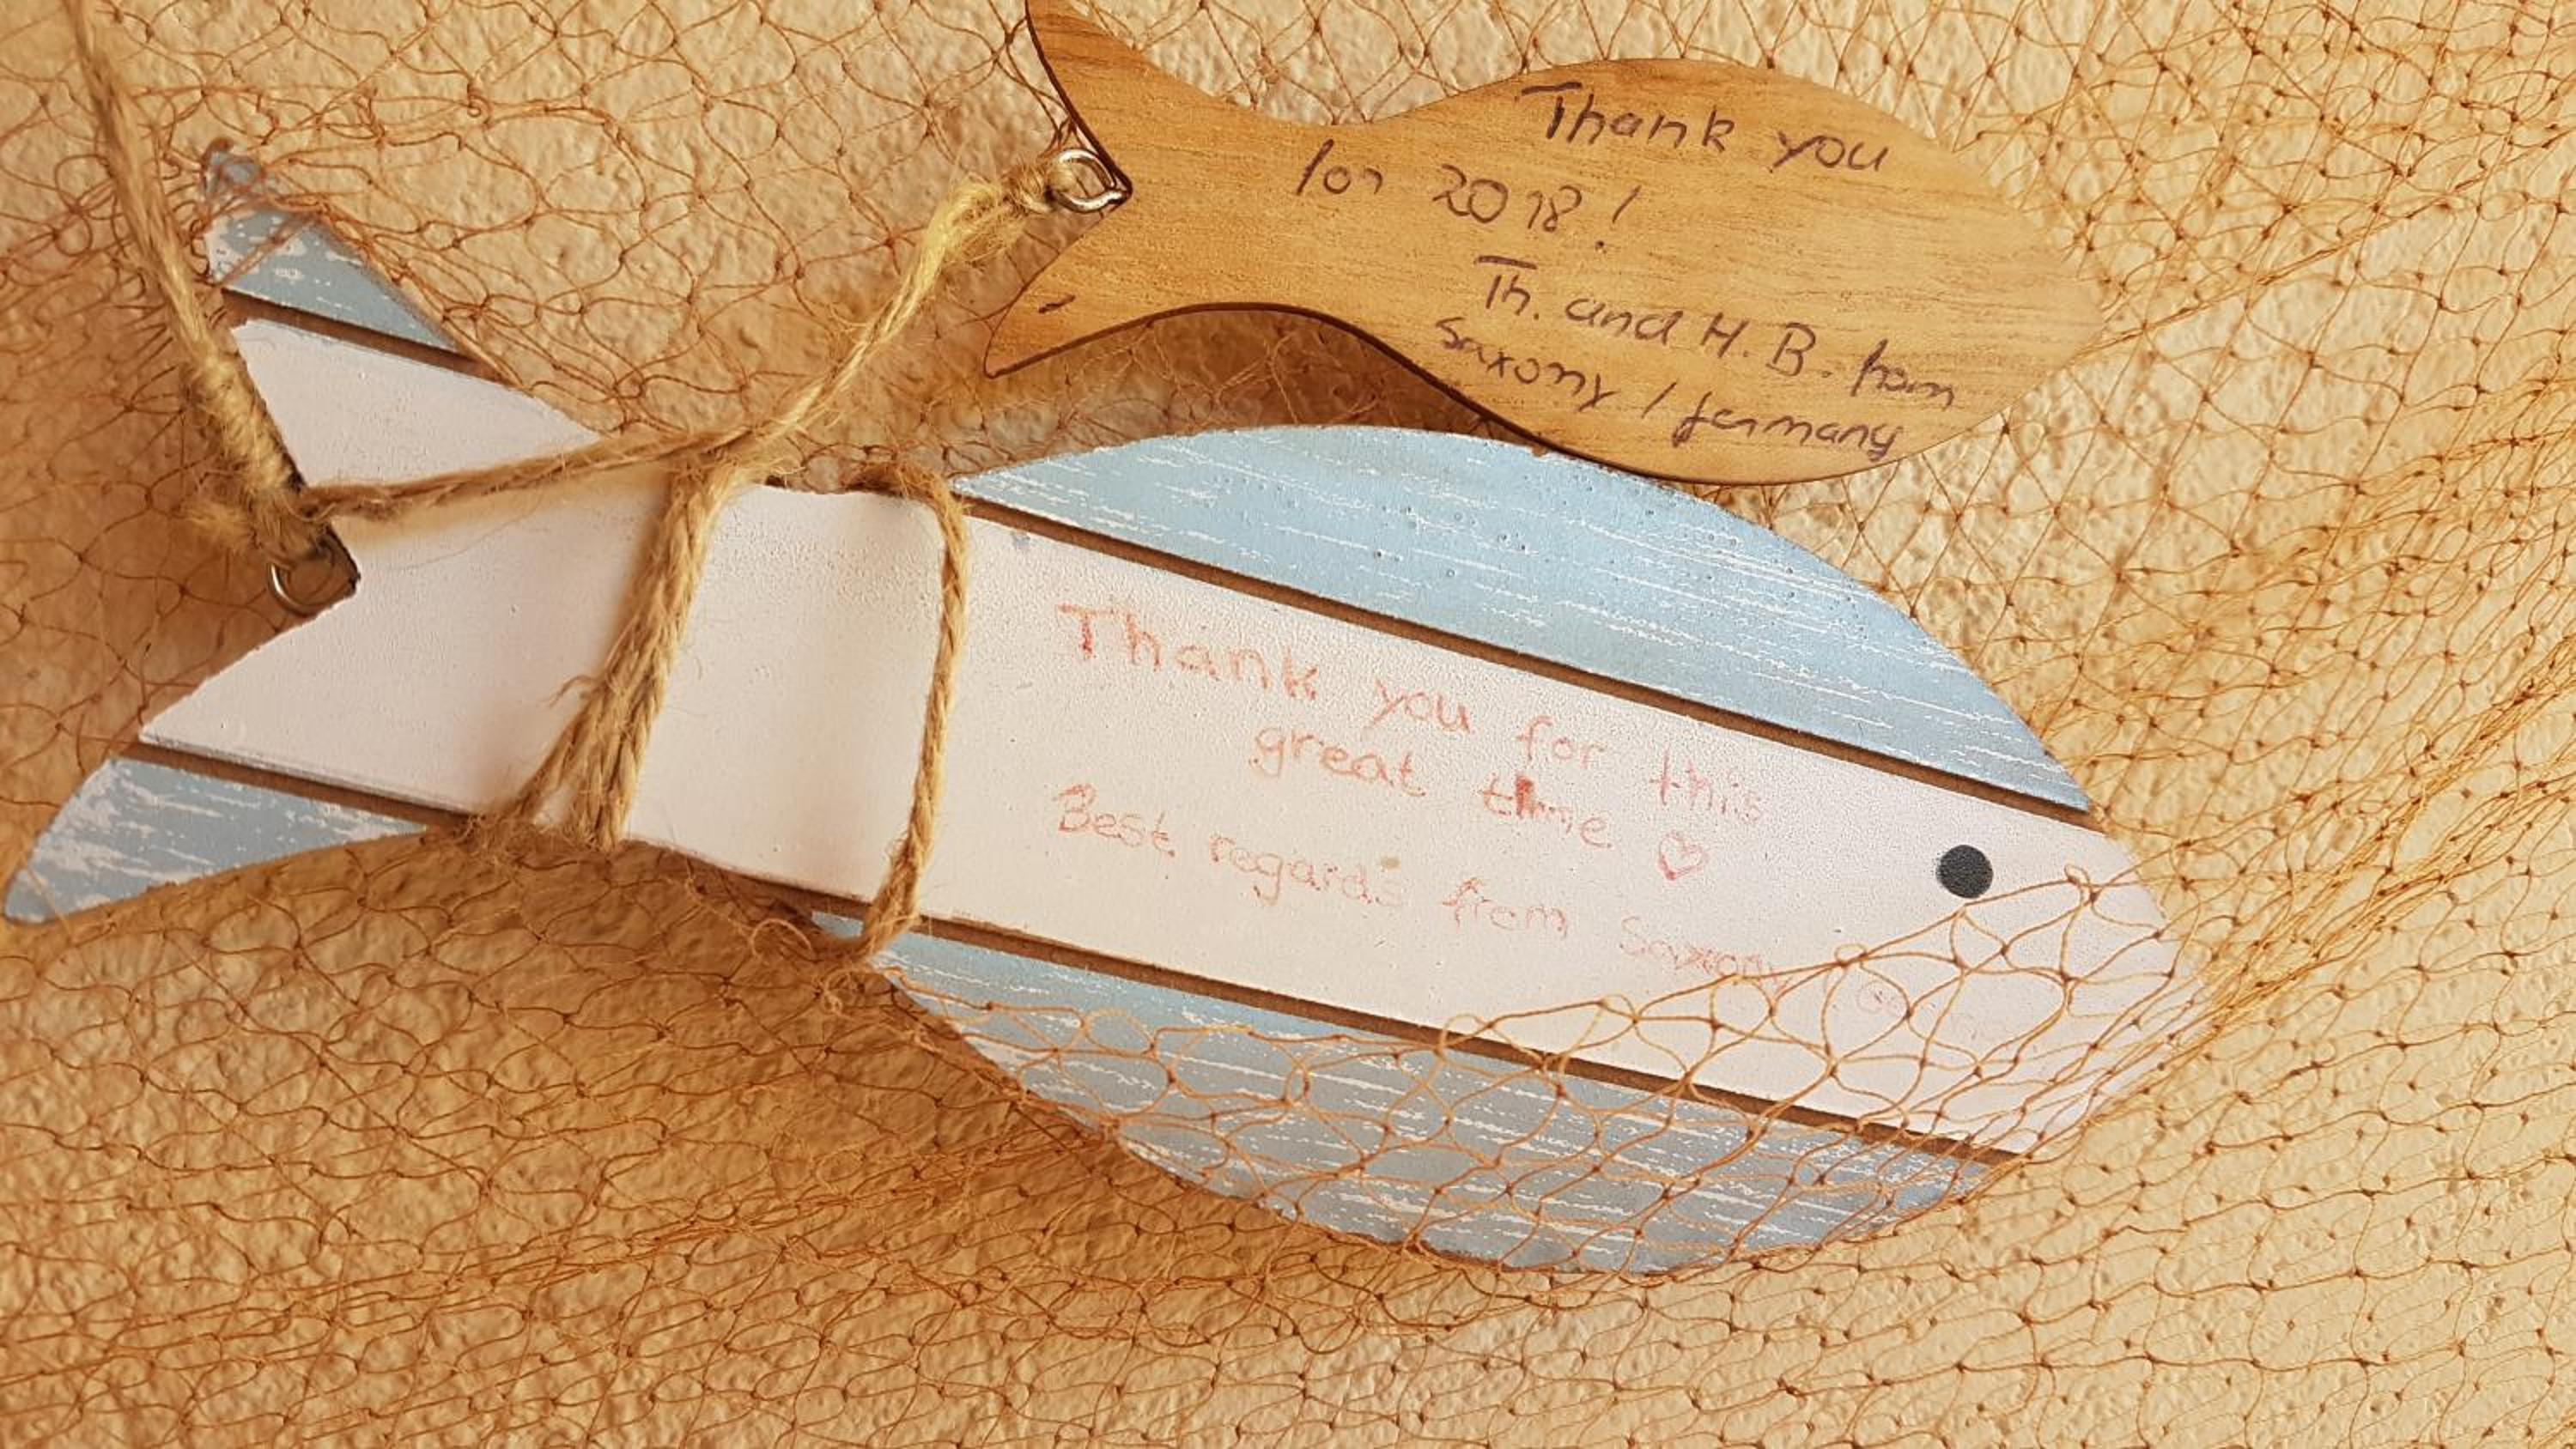 Thank you
for 2018!
Th. and H. B. from
Saxony / Germany
Thank you for this
great time ♡
Best regards from Saxony